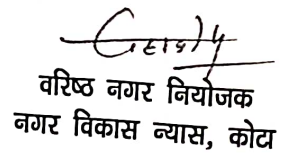 वरिष्ठ नगर नियोजक
नगर विकास न्यास, कोटा